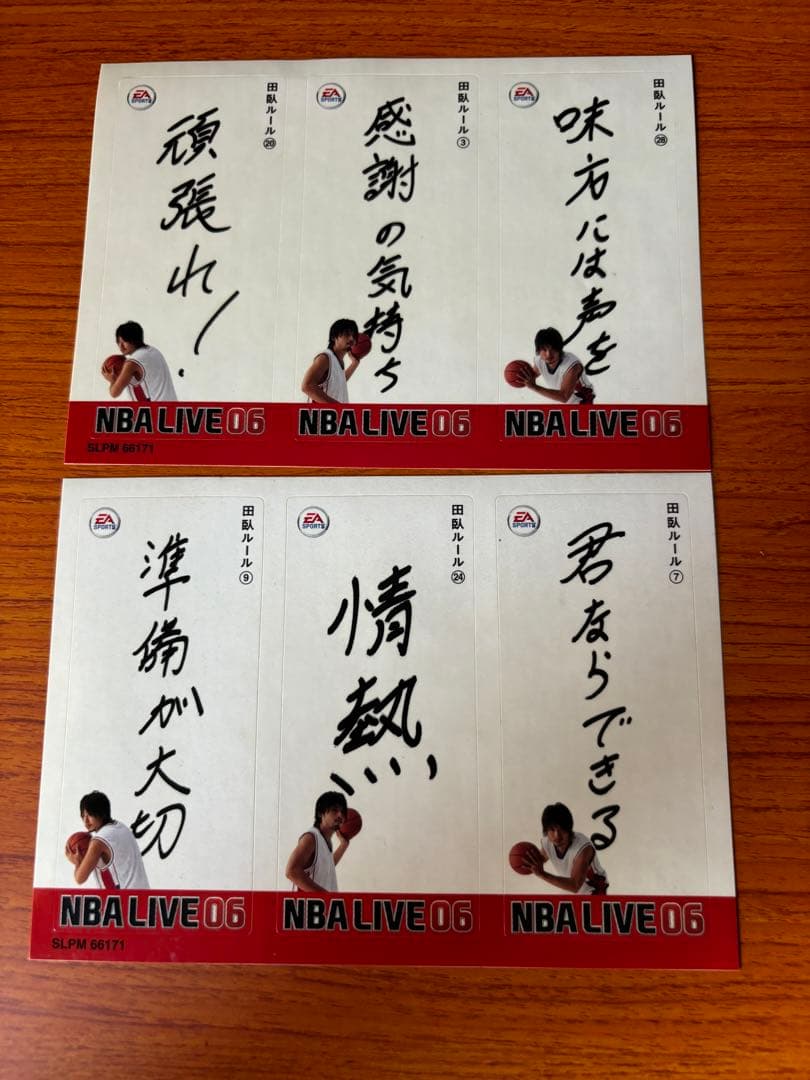 田臥ルール㉘
味方には声を
EA SPORTS
NBA LIVE 06
田臥ルール③
感謝の気持ち
EA SPORTS
NBA LIVE 06
田臥ルール⑳
頑張れ!
EA SPORTS
NBA LIVE 06
SLPM 66171
田臥ルール⑦
君ならできる
EA SPORTS
NBA LIVE 06
田臥ルール㉔
情熱
EA SPORTS
NBA LIVE 06
田臥ルール⑨
準備が大切
EA SPORTS
NBA LIVE 06
SLPM 66171